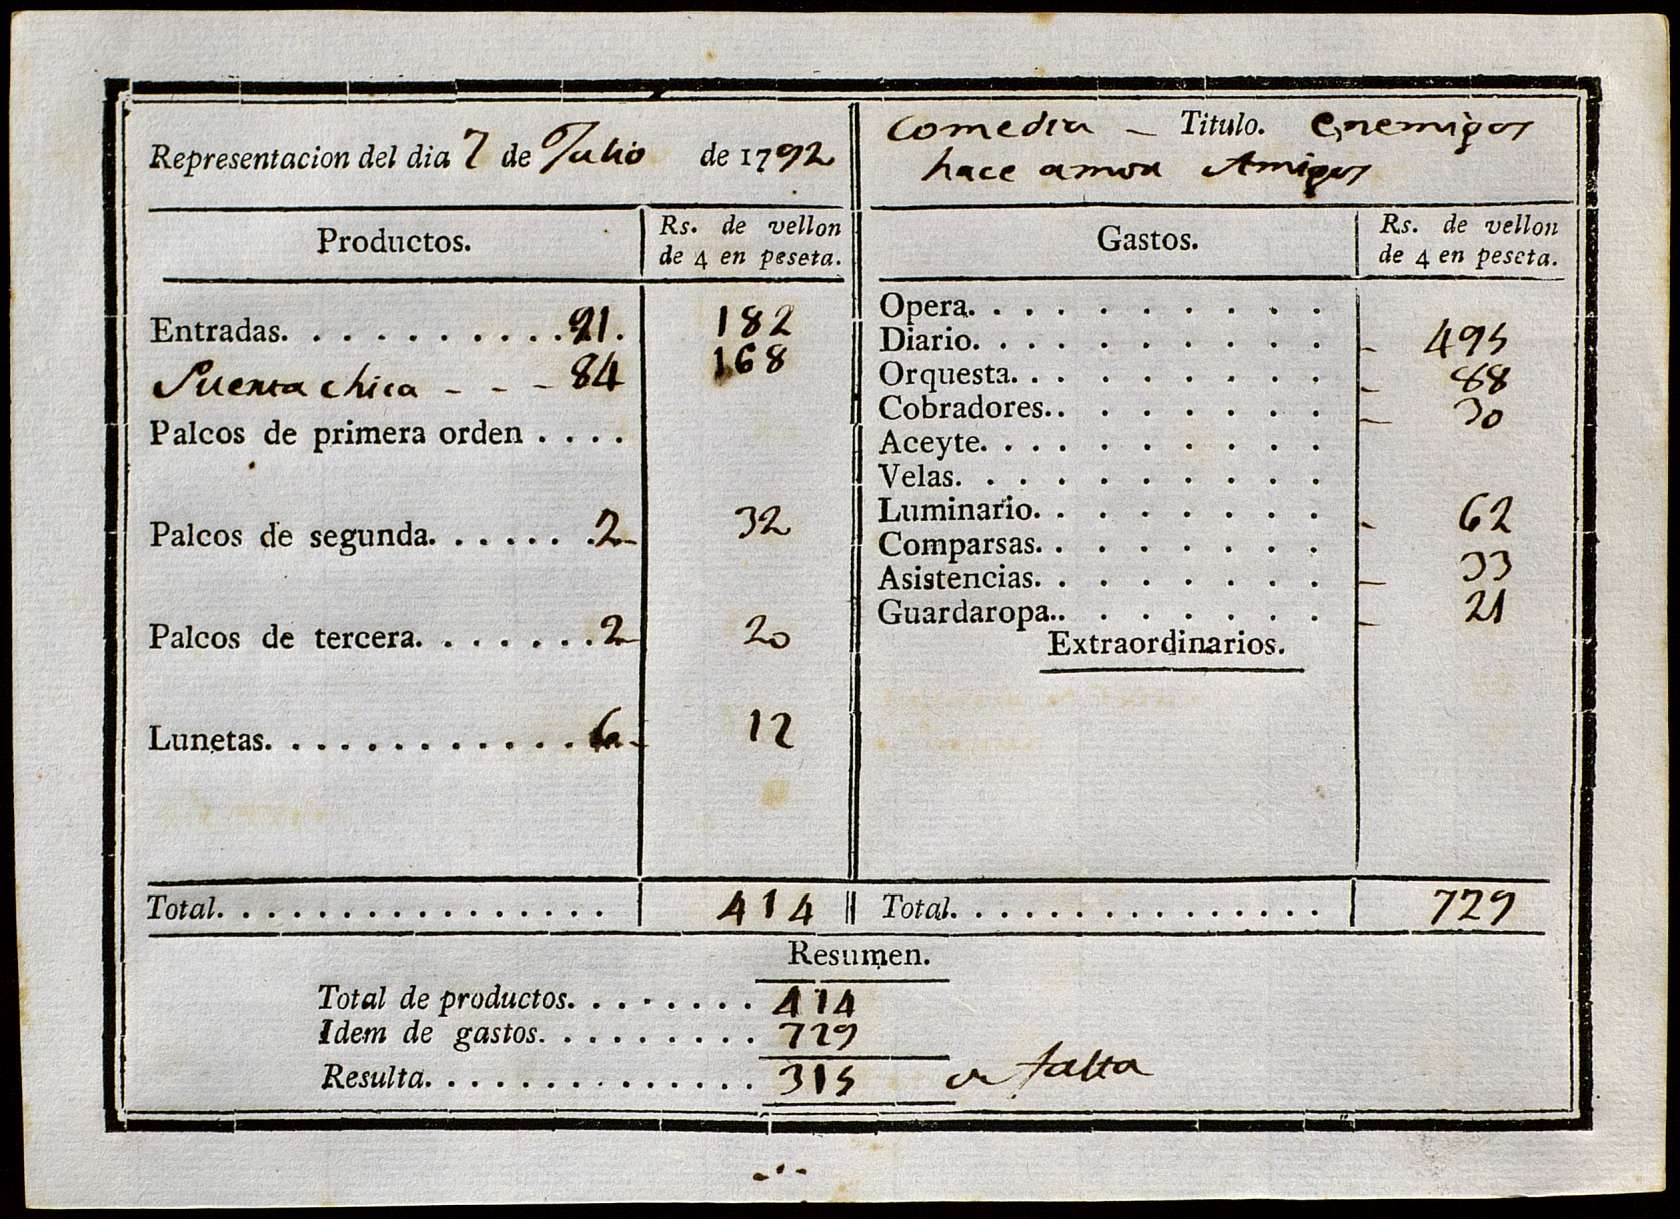 Representacion del dia 7 de Julio de 1792
Comedia - Titulo. Enemigos
hace amor Amigos
Productos.
Rs. de vellon
de 4 en peseta.
Entradas. . . . . . . . . . 91. 182
Puerta chica - - - 84 168
Palcos de primera orden . . . .
Palcos de segunda. . . . . . . 2 32
Palcos de tercera. . . . . . . 2 20
Lunetas. . . . . . . . . . . . . 6 12
Total. . . . . . . . . . . . . . . . 414
Gastos.
Rs. de vellon
de 4 en peseta.
Opera. . . . . . . . . . .
Diario. . . . . . . . . . . 495
Orquesta. . . . . . . . . 88
Cobradores.. . . . . . . 30
Aceyte. . . . . . . . . . .
Velas. . . . . . . . . . .
Luminario. . . . . . . . 62
Comparsas. . . . . . . .
Asistencias. . . . . . . . 33
Guardaropa.. . . . . . . 21
Extraordinarios.
Total. . . . . . . . . . . . . . . . 729
Resumen.
Total de productos. . . . . . . . 414
Idem de gastos. . . . . . . . . 729
Resulta. . . . . . . . . . . . . . 315 falta